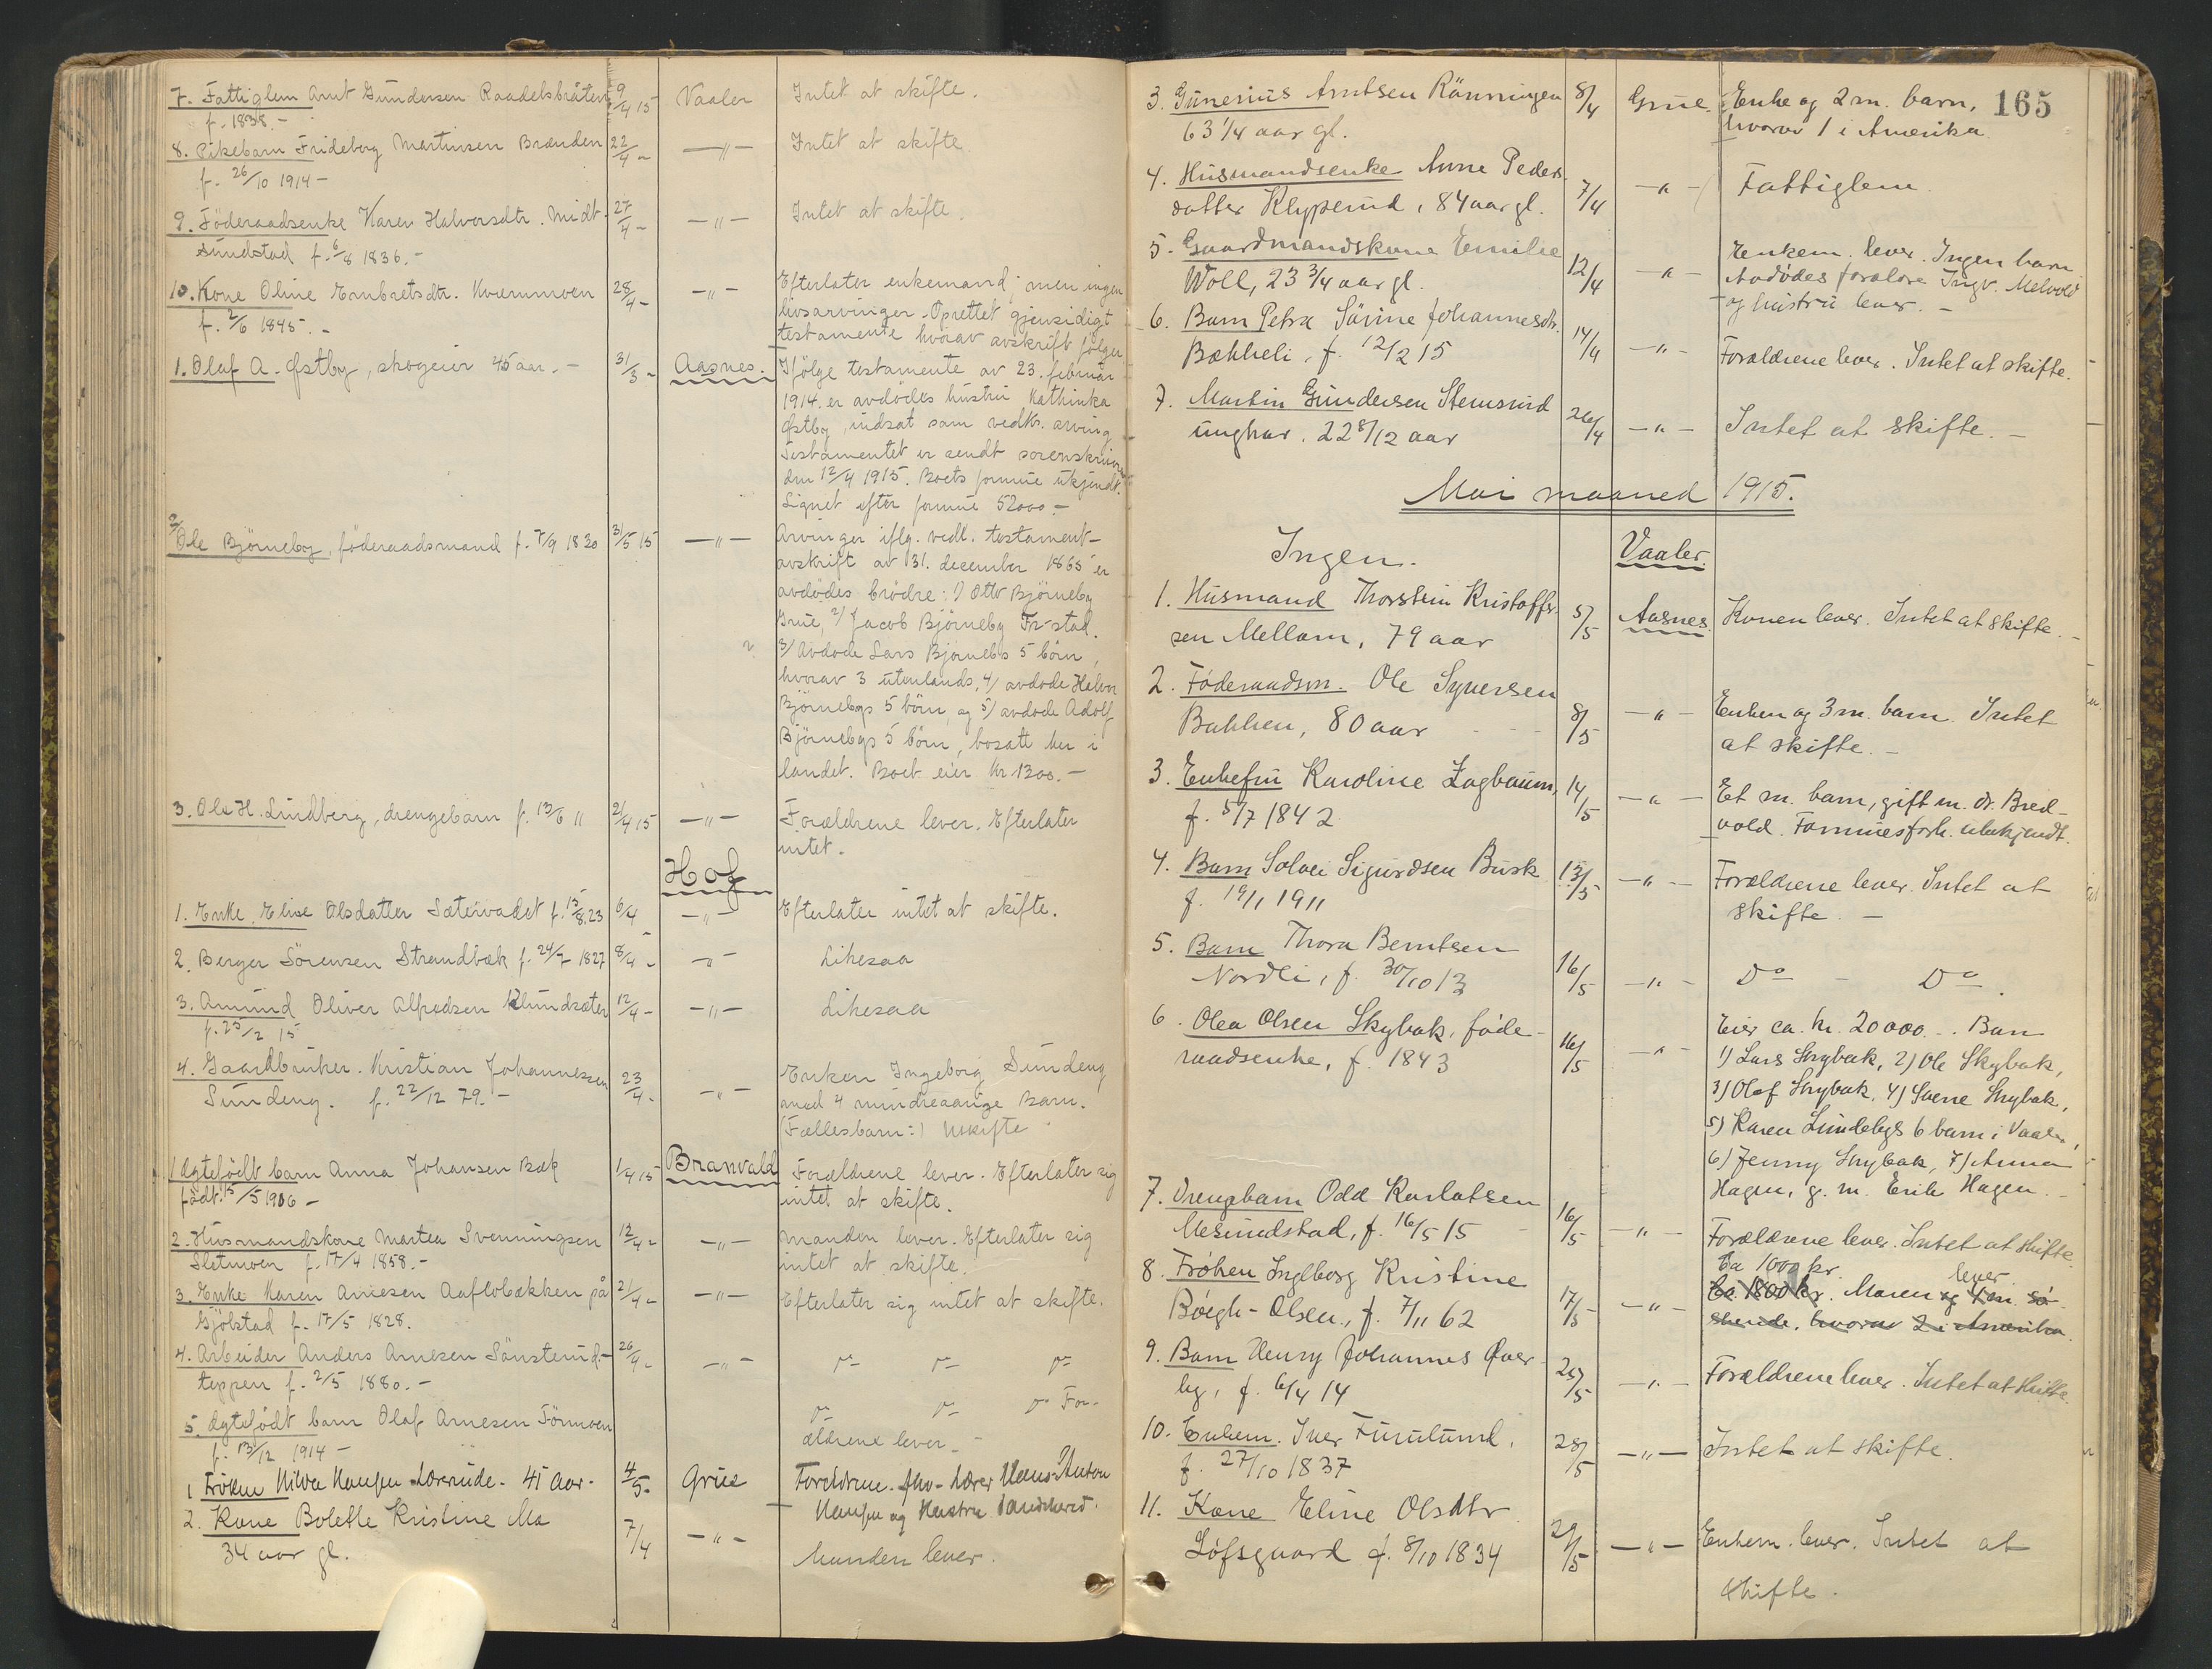 7. Fattiglem Arnt Gundersen Raadelsbråten 9/4 15 Vaaler Intet at skifte.
f. 1838. -
8. Pikebarn Frideborg Martinsen Brænden 22/4 - —"— Intet at skifte.
f. 26/10 1914 -
9. Föderaadsenke Karen Halvorsdtr. Midt- 27/4 - —"— Intet at skifte.
sundstad f. 6/8 1836. -
10. Kone Oline Embretsdtr. Kvernmoen 28/4 - —"— Efterlater enkemand, men ingen
f. 2/6 1845. - livsarvinger. Oprettet gjensidigt
testamente hvorav avskrift følger.
1. Olaf A. Østby, skogeier 45 aar. - 31/3 - Aasnes. Ifölge testamente av 23. februar
1914 er avdödes hustru Kathinka
Østby, indsat som vedk. arving
Testamentet er sendt sorenskriveren
den 12/4 1915. Boets formue ukjendt.
Lignet efter formue 52000 -
2/ Ole Björneby, föderaadsmand f. 7/9 1830 31/5 15 —"— Arvinger iflg. vedl. testament-
avskrift av 31. december 1865 er
avdödes brödre: 1) Otto Björneby
Grue, 2/ Jacob Björneby Fr-stad.
3/ Avdøde Lars Bjørnebys 5 børn,
hvorav 3 utenlands, 4/ avdøde Halvor
Bjørnebys 5 børn, og 5) avdøde Adolf
Bjørnebys 5 börn, bosatt her i
landet. Boet eier kr 1300. -
3. Ole H. Lindberg, drengebarn f. 13/6 11 2/4 15 —"— Forældrene lever. Efterlater
intet.
Hof
1. Enke, Elise Olsdatter Sætervadet f. 15/8 23 6/4 - —"— Efterlater intet at skifte.
2. Berger Sörensen Strandbæk f. 24/7 1827 8/4 - —"— Likesaa
3. Amund Oliver Alfredsen Klundsæter 12/4 - —"— Likesaa
f. 25/2 15
4. Gaardbruker Kristian Johannessen 23/4 - —"— Enken Ingeborg Sundeng
Sundeng. f. 22/12 79. - med 4 mindreaarige Barn.
(Fællesbarn:) Uskifte
1 Ægtefödt barn Anna Johansen Bæk 1/4 15 Branvald Forældrene lever. Efterlater sig
født 15/5 1906 - intet at skifte.
2. Husmandskone Martea Svenningsen 12/4 - —"— Manden lever. Efterlater sig
Sletmoen f. 17/4 1858. - intet at skifte.
3. Enke Karen Arnesen Aaflobakken på 21/4 - —"— Efterlater sig intet at skifte.
Gjölstad f. 17/5 1828.
4. Arbeider Anders Arnesen Sönsterud - 26/4 - —"— Do Do Do
teppen f. 2/5 1880. -
5. Ægtefödt barn Olaf Arnesen Törmoen Do Do Do For-
f. 13/12 1914 - ældrene lever -
1 Frøken Hilda Hansen Lærerinde - 41 Aar - 4/5 - Grue Foreldrene. fhv. Lærer Hans Anton
Hansen og Hustru
2. Kone Bolette Kristine Mo 7/4 —"— Manden lever.
34 aar gl.
165
3. Gunerius Arntsen Rönningen 8/4 Grue Enke og 2 m. barn,
63 1/4 aar gl. hvorav 1 i Amerika.
4. Husmandsenke Anne Peders- 7/4 —"— Fattiglem.
datter Klyperud, 84 aar gl.
5. Gaardmandskone Emilie 12/4 —"— Enkem. lever. Ingen barn
Woll, 23 3/4 aar gl. Avdødes foreldre Ingv. Melvold
og hustru lever. -
6. Barn Petra Sörine Johannesdtr. 14/4 —"— Forældrene lever. Intet at skifte.
Bækkeli, f. 12/2 15
7. Martin Gundersen Stemsrud 26/4 —"— Intet at skifte. -
ungkar. 22 8/12 aar
Mai maaned 1915.
Ingen. Vaaler.
1. Husmand Thorstein Kristoffer- 5/5 Aasnes. Konen lever. Intet at skifte. -
sen Mellom, 79 aar
2. Föderaadsm. Ole Syversen 8/5 —"— Enken og 3 m. barn. Intet
Bakken, 80 aar at skifte. -
3. Enkefru Karoline Zagbaum, 14/5 —"— Et m. barn, gift m. dr. Bred-
f. 5/7 1842 vold. Formuesforh. ubekjendt.
4. Barn Solvei Sigurdsen Busk 13/5 —"— Forældrene lever. Intet at
f. 19/11 1911 skifte. -
5. Barn Thora Berntsen 16/5 —"— Do - Do.
Nordli, f. 30/10 13
6. Olea Olsen Skybak, føde- 16/5 —"— Eier ca. kr. 20000 -. Barn
raadsenke, f. 1843 1) Lars Skybak, 2) Ole Skybak,
3) Olof Skybak, 4) Syene Skybak,
5) Karen Lundebys 6 barn i Vaaler,
6) Jenny Skybak, 7) Anna
Hagen, g. m. Erik Hagen. -
7. Drengbarn Odd Karlotsen 16/5 —"— Forældrene lever. Intet at skifte.
Mesundstad, f. 16/5 15
8. Frøken Inglborg Kristine 17/5 —"— Ca 1000 kr. lever
Bøigh-Olsen, f. 7/11 62 Ca. 1800 kr. Moren og 1 m. sø-
skende, hvorav 2 i Amerika.
9. Barn Henry Johannes Over- 25/5 —"— Forældrene lever. Intet at skifte.
by, f. 6/4 14
10. Enkem. Iver Furulund, 28/5 —"— Intet at skifte.
f. 27/10 1837
11. Kone Eline Olsdtr 29/5 —"— Enkem. lever. Intet at
Løfsgaard f. 8/10 1834 skifte.